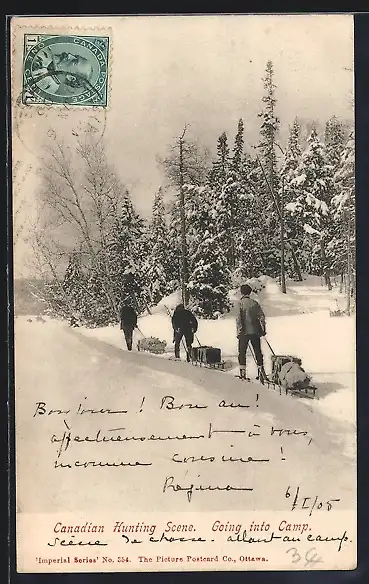 CANADA POSTAGE
Bonjour! Bon an!
affectueusement à vous,
inconnue cousine!
Regina
6/I/05
Canadian Hunting Scene. Going into Camp.
Scène de chasse. allant au camp.
'Imperial Series' No. 354. The Picture Postcard Co., Ottawa.